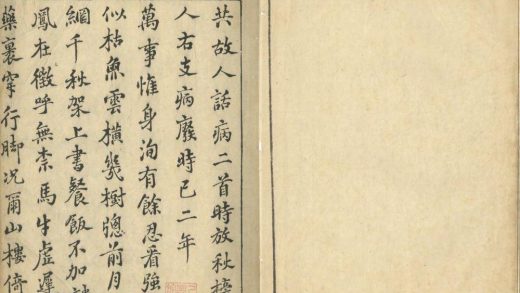 共故人話病二首時放秋
人右支病廢時已二年
萬事惟身洵有餘忍看強
似枯魚雲橫幾樹窓前月
網千秋架上書餐飯不加
鳳在徵呼無柰馬牛虛遲
藥裹穿行脚況爾山樓倚